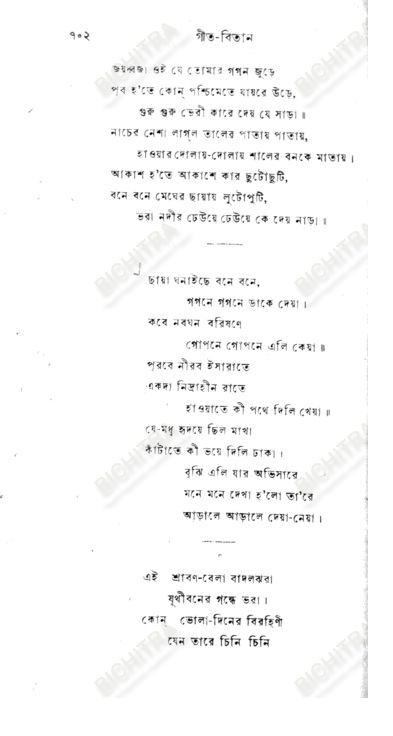 ৭০২ গীত-বিতান
জয়ধ্বজা ওই যে তোমার গগন জুড়ে
পূব হ'তে কোন্ পশ্চিমেতে যায়রে উড়ে,
গুরু গুরু ভেরী কারে দেয় যে সাড়া॥
নাচের নেশা লাগ্‌ল তালের পাতায় পাতায়,
হাওয়ার দোলায়-দোলায় শালের বনকে মাতায়।
আকাশ হ'তে আকাশে কার ছুটোছুটি,
বনে বনে মেঘের ছায়ায় লুটোপুটি,
ভরা নদীর ঢেউয়ে ঢেউয়ে কে দেয় নাড়া॥
ছায়া ঘনাইছে বনে বনে,
গগনে গগনে ডাকে দেয়া।
কবে নবঘন বরিষণে
গোপনে গোপনে এলি কেয়া॥
পূরবে নীরব ইসারাতে
একদা নিদ্রাহীন রাতে
হাওয়াতে কী পথে দিলি খেয়া॥
যে-মধু হৃদয়ে ছিল মাখা
কাঁটাতে কী ভয়ে দিলি ঢাকা।
বুঝি এলি যার অভিসারে
মনে মনে দেখা হ'লো তা'রে
আড়ালে আড়ালে দেয়া-নেয়া।
এই শ্রাবণ-বেলা বাদলঝরা
যূথীবনের গন্ধে ভরা।
কোন্ ভোলা-দিনের বিরহিণী
যেন তারে চিনি চিনি
BICHITRA